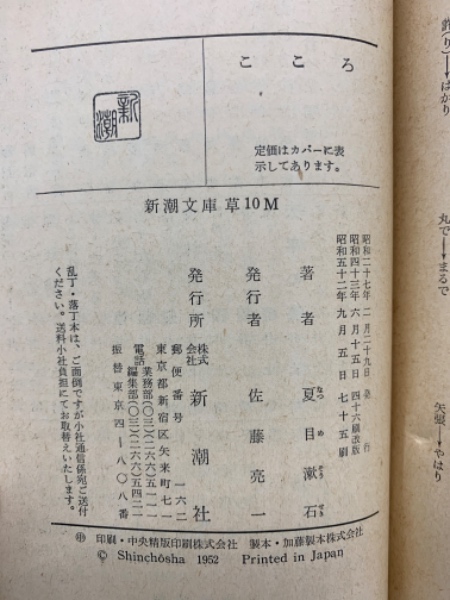 こころ
定価はカバーに表
示してあります。
新潮
新潮文庫 草10M
昭和二十七年 二月二十九日 発行
昭和四十三年 六月十五日 四十六刷改版
昭和五十二年 九月五日 七十五刷
著者 夏目漱石
なつめそうせき
発行者 佐藤亮一
発行所 株式会社 新潮社
郵便番号 一六二
東京都新宿区矢来町七一
電話 業務部(〇三)二六六-五一一一
編集部(〇三)二六六-五四一一
振替 東京四-八〇八番
乱丁・落丁本は、ご面倒ですが小社通信係宛ご送付
ください。送料小社負担にてお取替えいたします。
印刷・中央精版印刷株式会社 製本・加藤製本株式会社
© Shinchōsha 1952 Printed in Japan
許(り)→ばかり
丸で→まるで
矢張→やはり